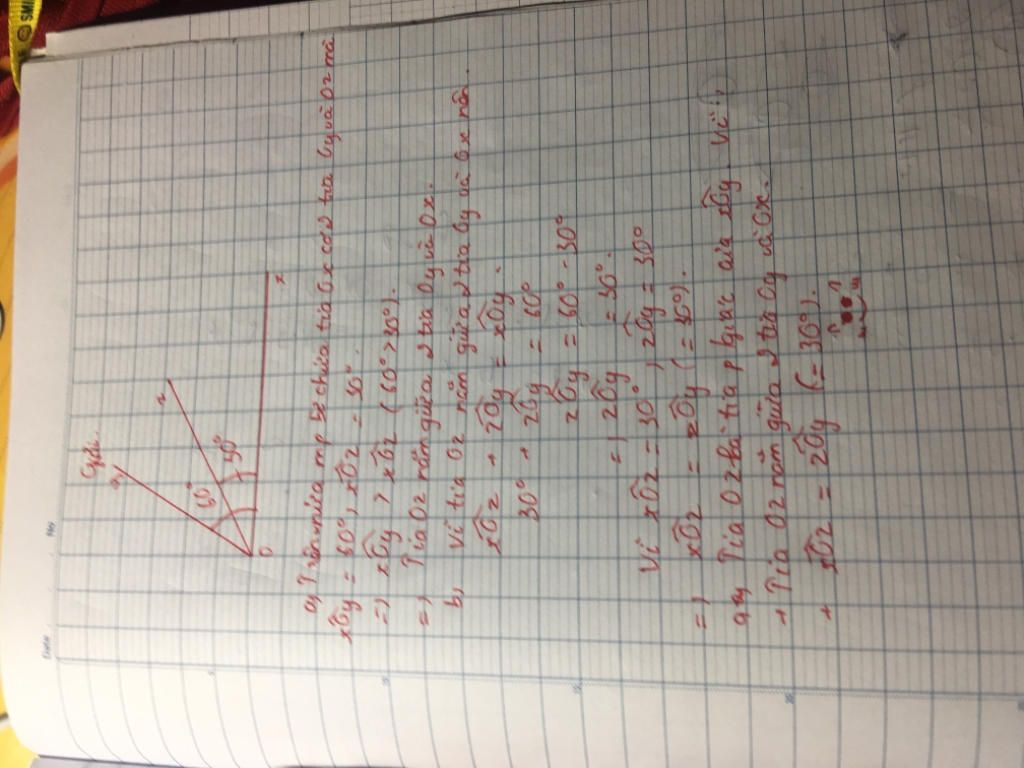 Giải.
y
z
60°
30°
O
x
a, Trên nửa mp bờ chứa tia Ox có 2 tia Oy và Oz mà
xÔy = 60°, xÔz = 30°.
=, xÔy > xÔz (60° > 30°).
=, Tia Oz nằm giữa 2 tia Oy và Ox.
b, Vì tia Oz nằm giữa 2 tia Oy và Ox nên.
xÔz + zÔy = xÔy.
30° + zÔy = 60°
zÔy = 60° - 30°
=, zÔy = 30°.
Vì xÔz = 30°, zÔy = 30°
=, xÔz = zÔy (= 30°).
Tia Oz là tia p giác của xÔy. Vì:,
+ Tia Oz nằm giữa 2 tia Oy và Ox.
+ xÔz = zÔy (= 30°).